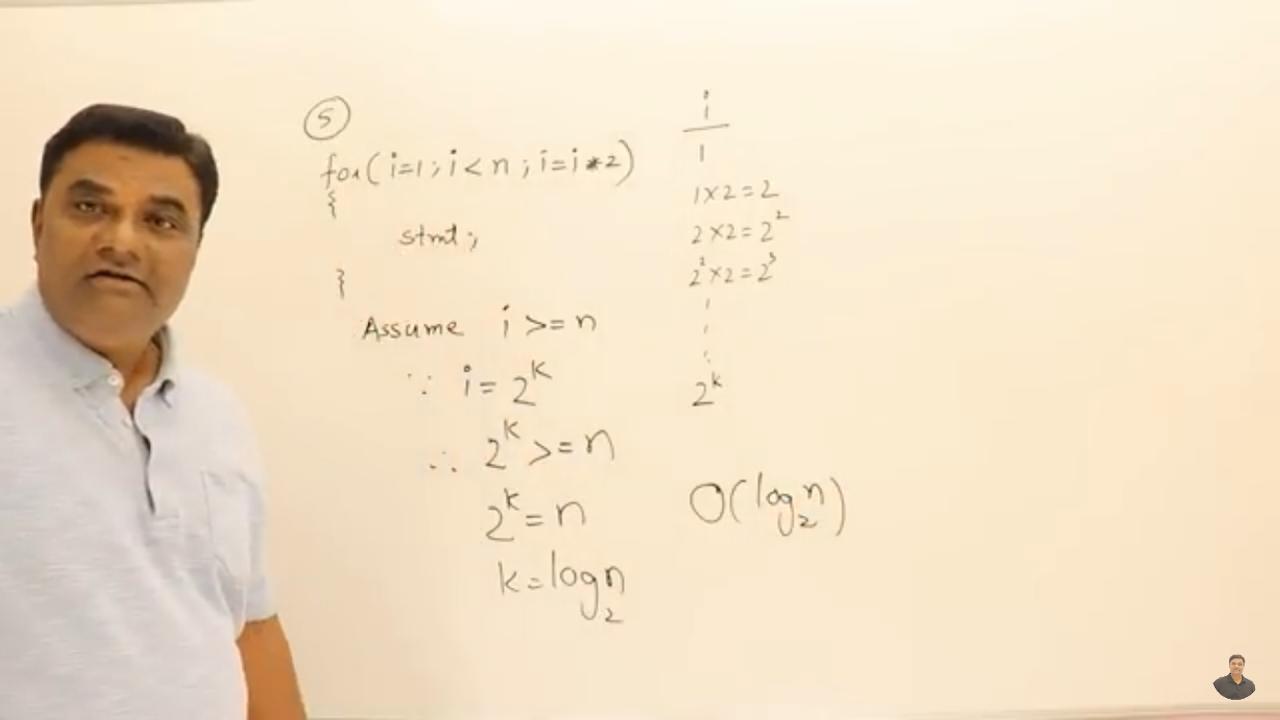 5
for(i=1; i<n; i=i*2)
{
stmt;
}
Assume i >= n
∵ i = 2^k
∴ 2^k >= n
2^k = n
k = log₂n
i
1
1×2=2
2×2=2²
2²×2=2³
2^k
O(log₂n)